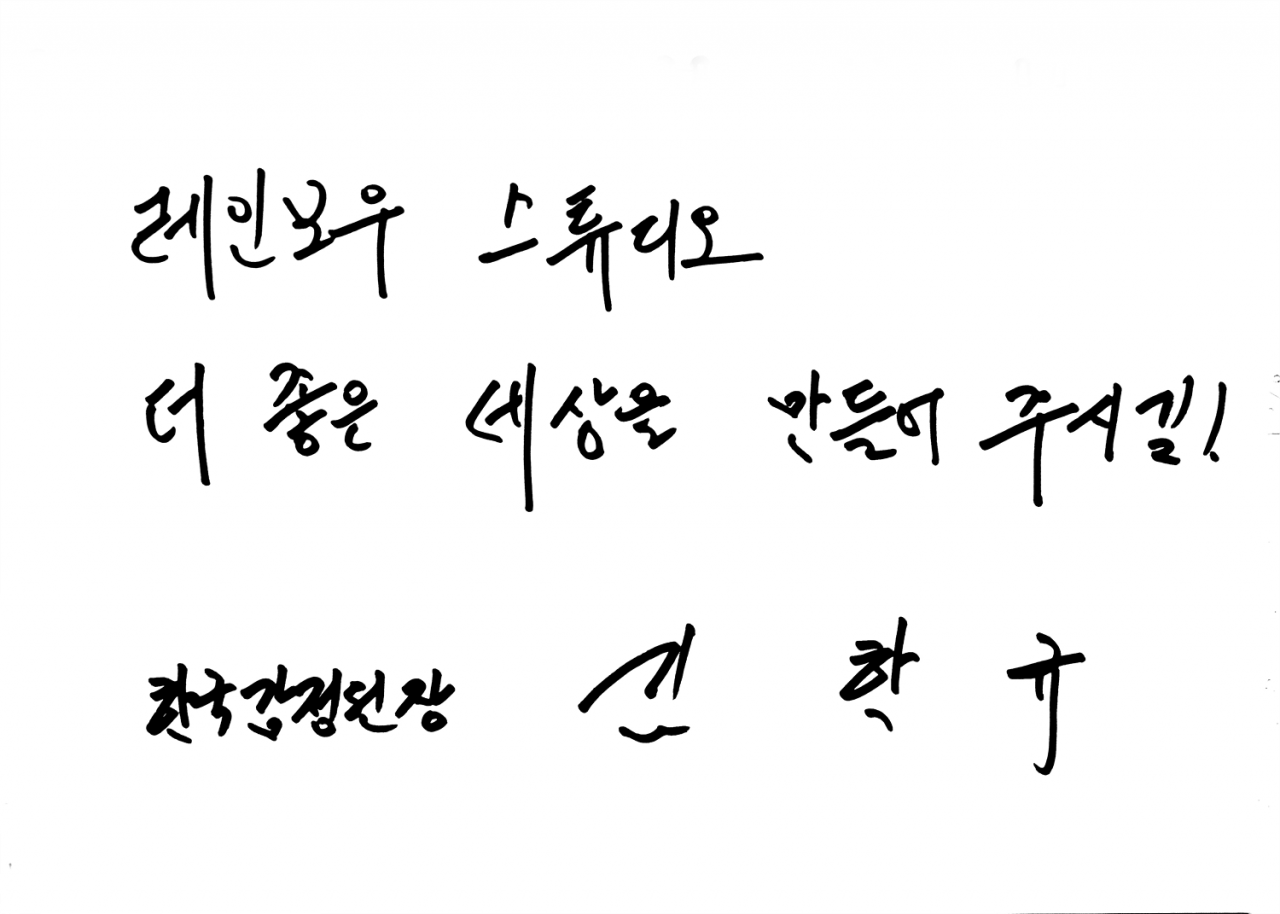 레인보우 스튜디오
더 좋은 세상을 만들어 주시길!
한국감정원장 김학규